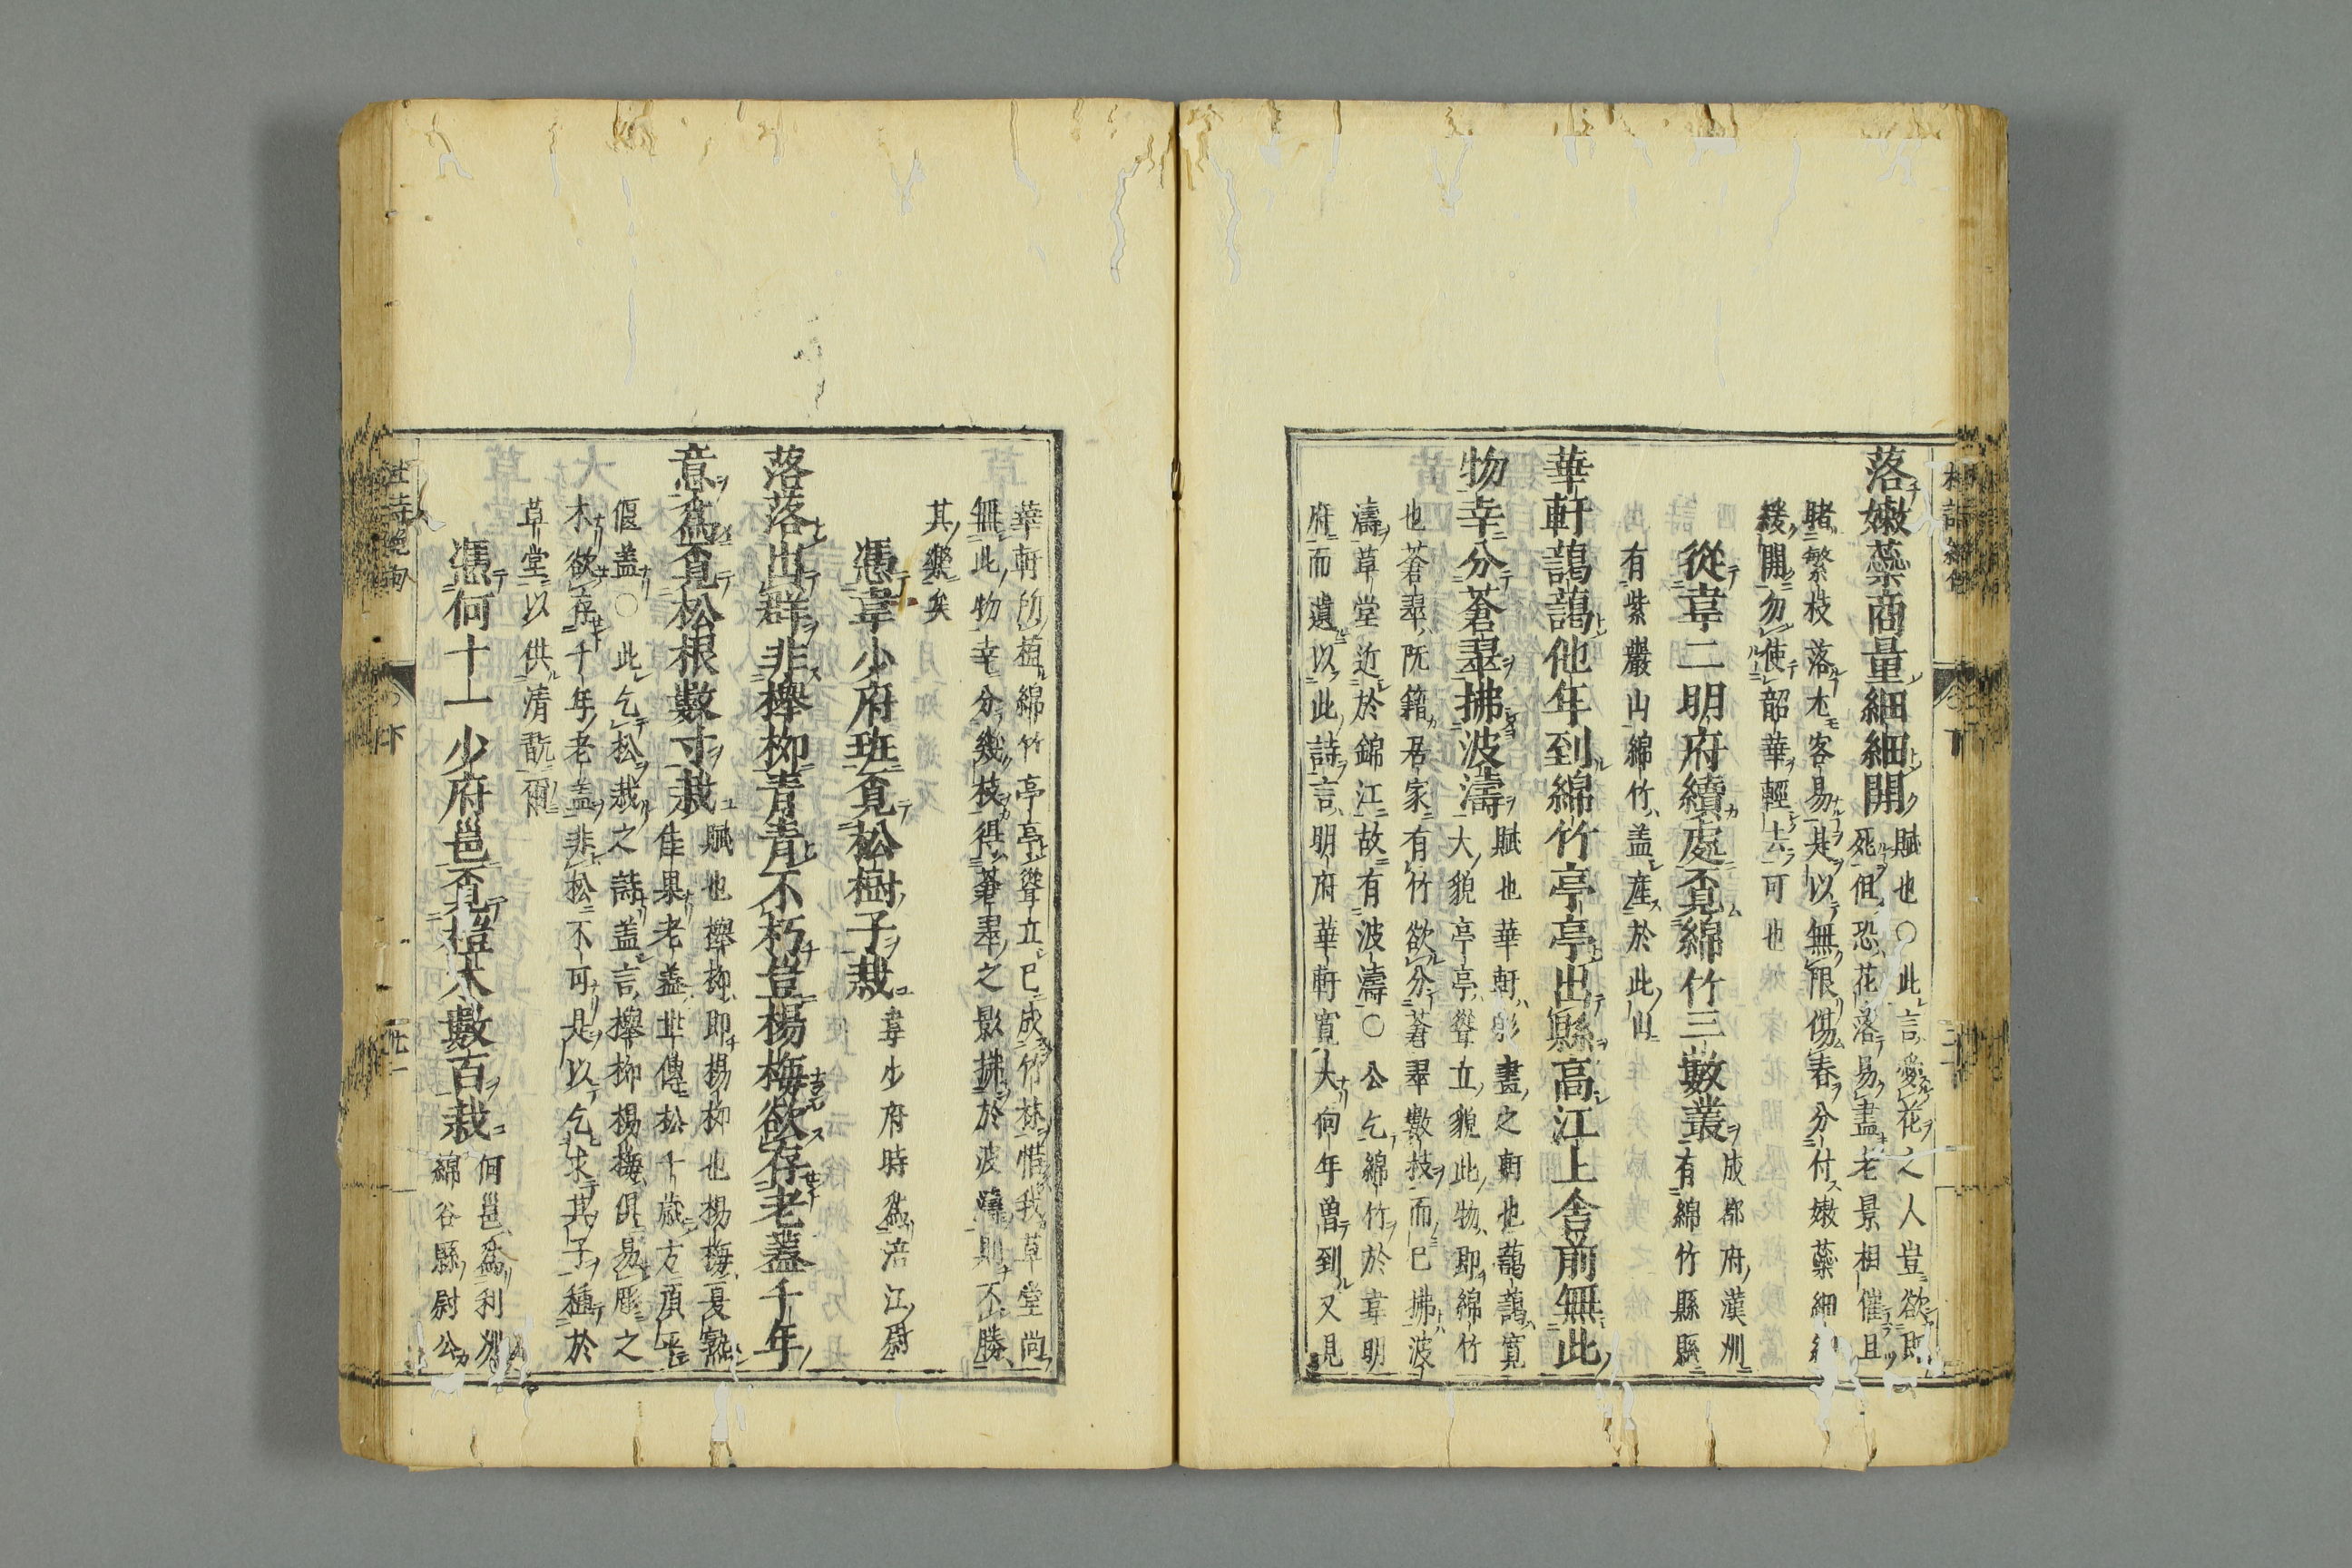 落嫩蘂商量細細開
賦也○此言愛花之人豈欲即
死但恐花落易盡老景相催且
賭繁枝落尤客易是以無限傷春分付嫩蘂細
緩開勿使韶華輕去可也
從韋二明府續處覓綿竹三數叢
成都府漢州
有綿竹縣縣
有紫巖山綿竹盖産於此山
華軒藹藹他年到綿竹亭亭出縣高江上舎前無此
物幸分蒼翠拂波濤
賦也華軒彫畫之軒也藹藹寛
大貌亭亭聳立貌此物即綿竹
也蒼翠旣籍君家有竹欲分蒼翠數枝而已拂波
濤草堂近於錦江故有波濤○公乞綿竹於韋明
府而遺以此詩言明府華軒寛大向年曽到又見
華軒所植綿竹亭亭聳立已成竹林惜我草堂尚
無此物幸分幾枝得蒼翠之影拂於波濤則不勝
其樂矣
憑韋少府班覓松樹子栽
韋少府時為涪江尉
落落出群非櫸柳青青不朽豈楊梅欲存老蓋千年
意為覓松根數寸栽
賦也櫸柳即楊柳也楊梅夏熟
佳果老蓋世傳松千歳方頂平
偃盖○此乞松栽之詩盖言櫸柳楊梅俱易彫之
木欲存千年老盖非松不可是以乞求其子種於
草堂以供清翫爾
憑何十一少府邕覓榿木數百栽
何邕為利州
綿谷縣尉公